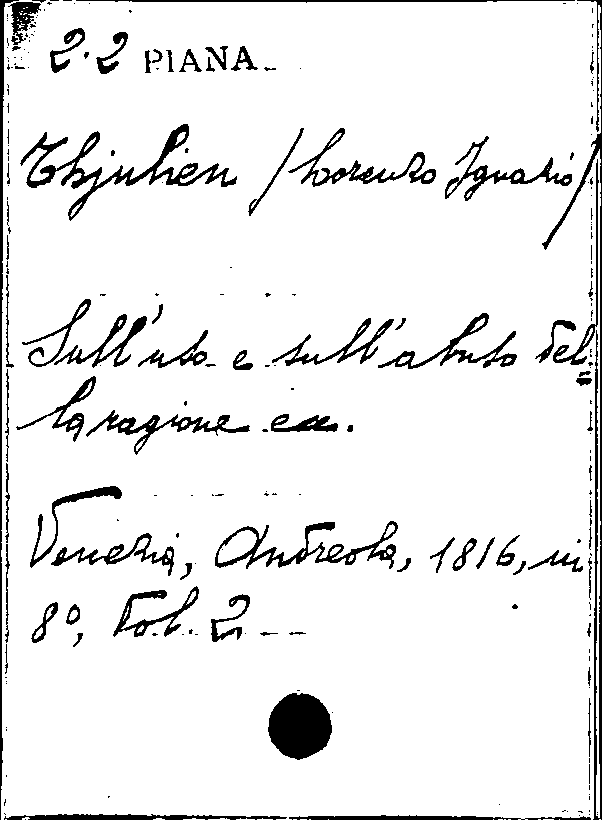 2.2 PIANA
Thjulien /Lorenzo Ignazio/
Sull'uso e sull'abuso del=
la ragione ecc.
Venezia, Andreola, 1816, in
8º, Vol. 2